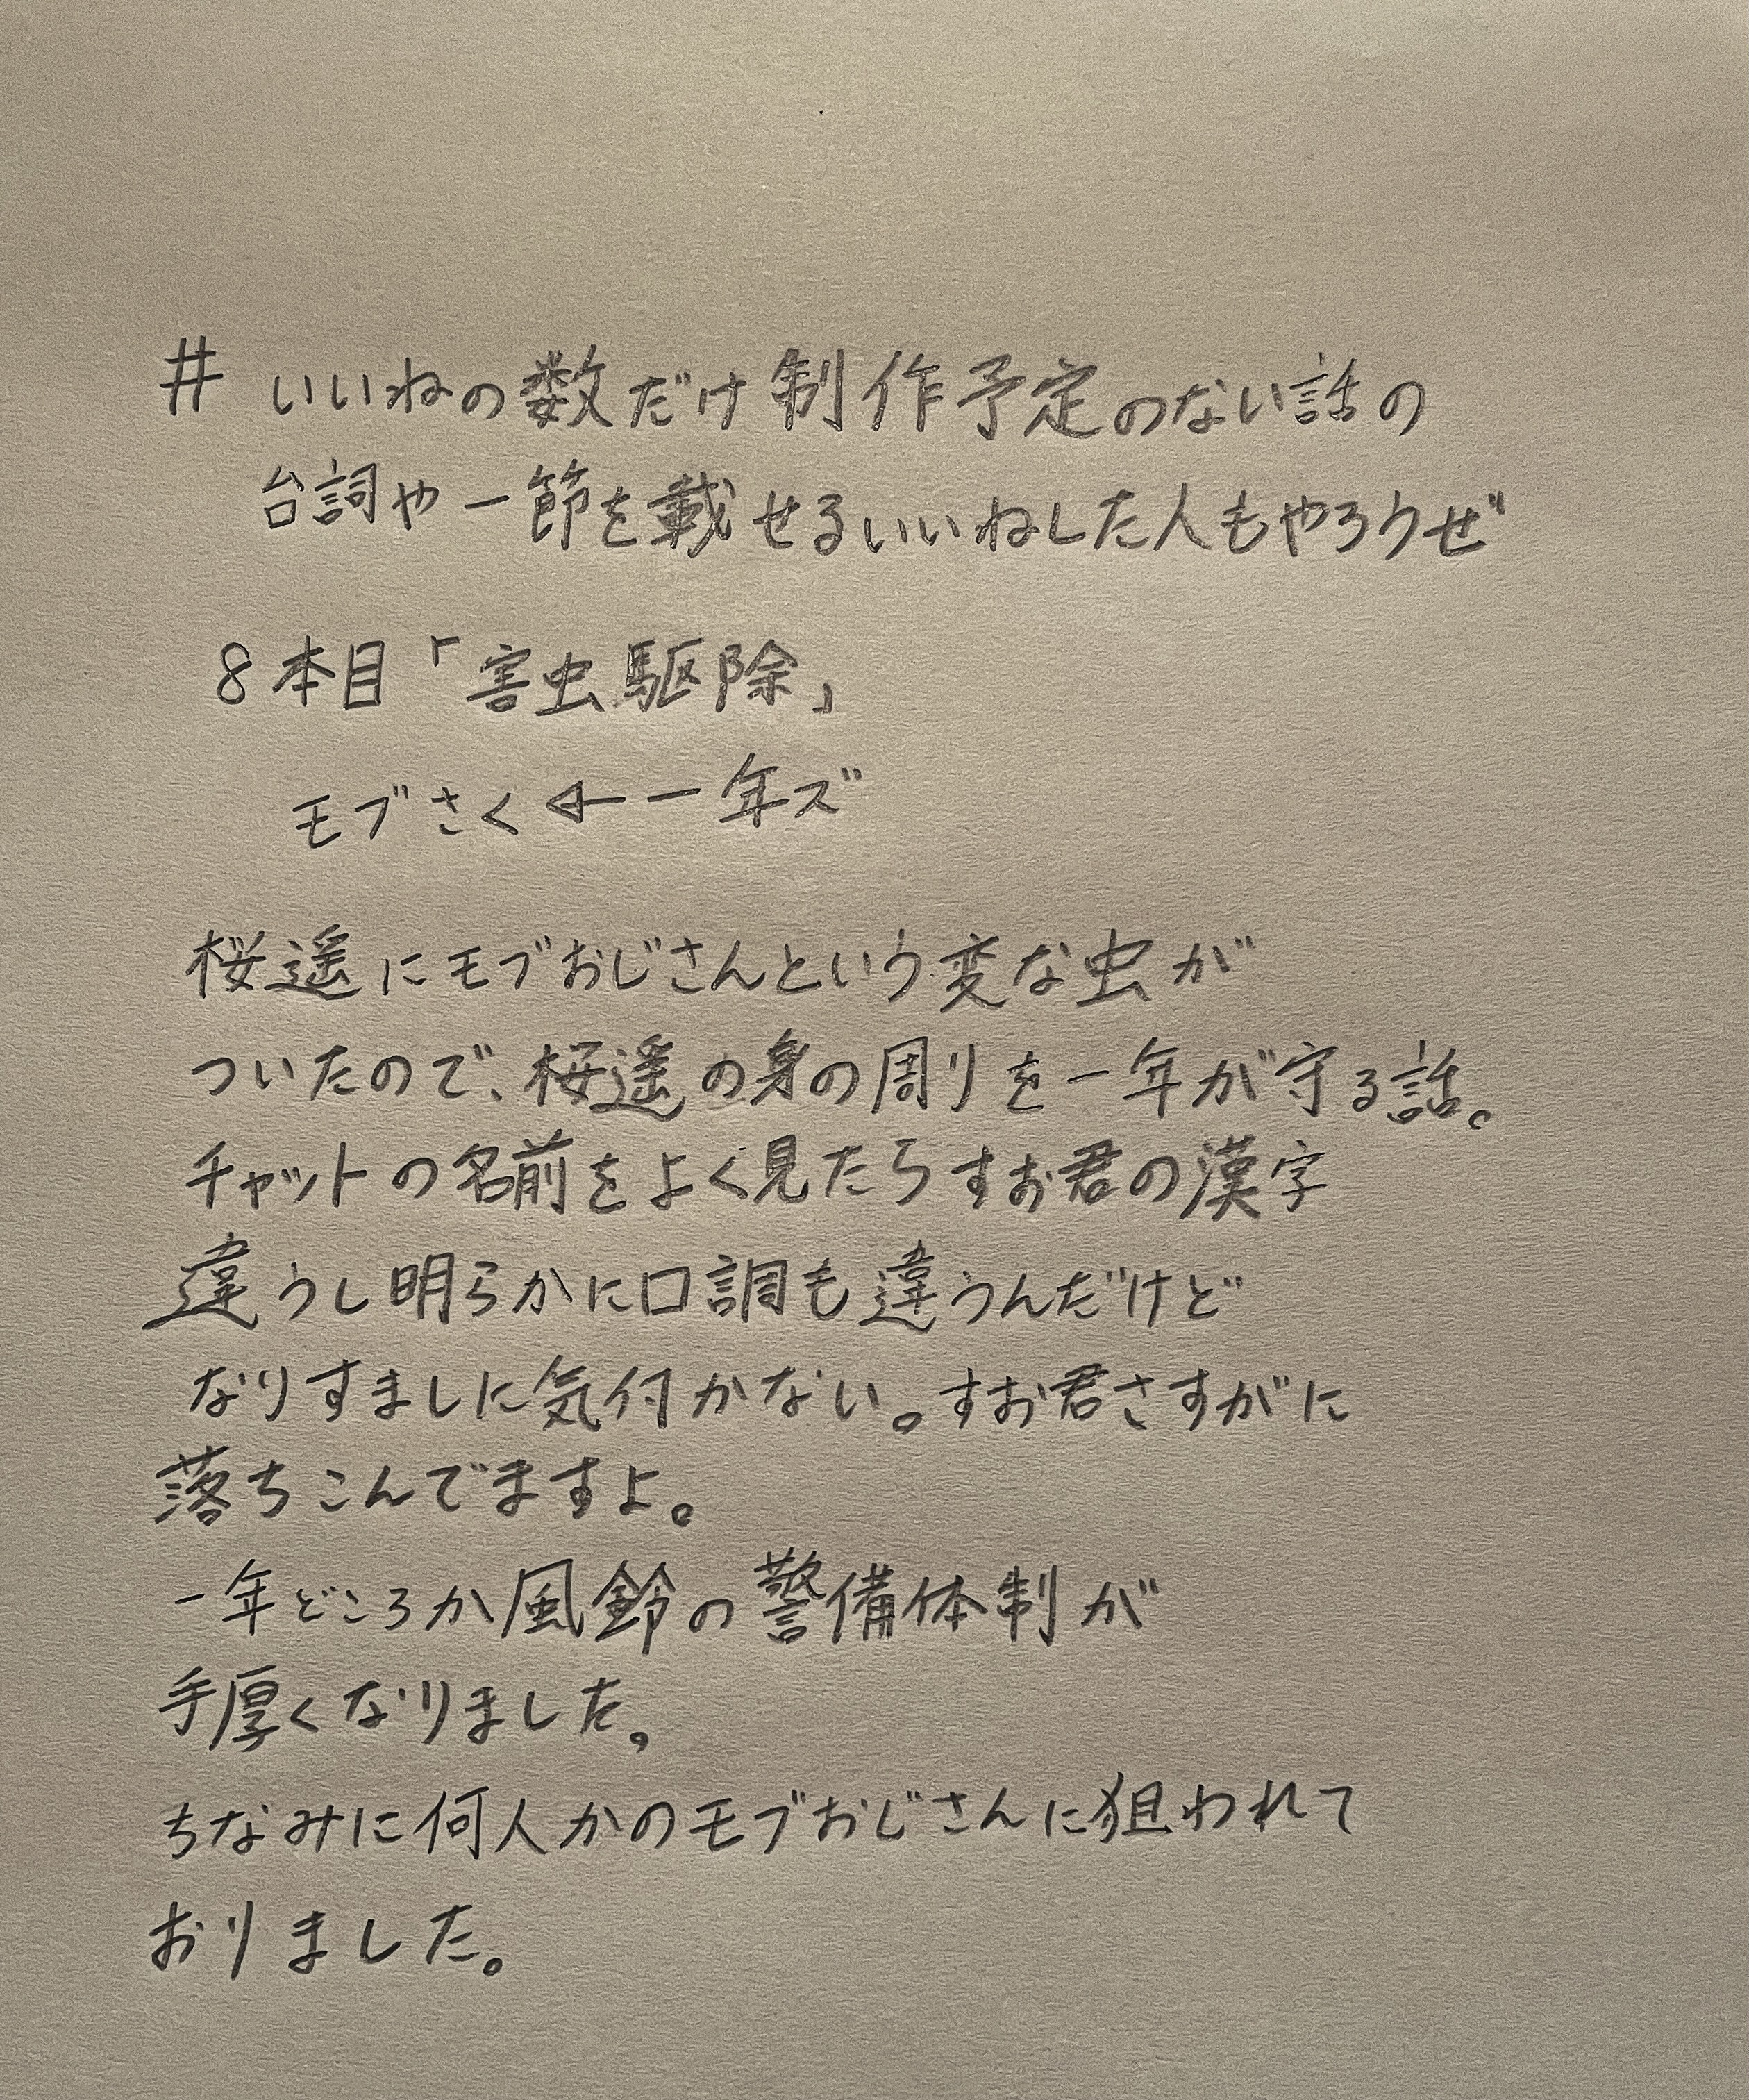 # いいねの数だけ制作予定のない話の
台詞や一節を載せるいいねした人もやろうぜ
8本目「害虫駆除」
モブさく←一年ズ
桜遥にモブおじさんという変な虫が
ついたので、桜遥の身の周りを一年が守る話。
チャットの名前をよく見たらすお君の漢字
違うし明らかに口調も違うんだけど
なりすましに気付かない。すお君さすがに
落ちこんでますよ。
一年どころか風鈴の警備体制が
手厚くなりました。
ちなみに何人かのモブおじさんに狙われて
おりました。